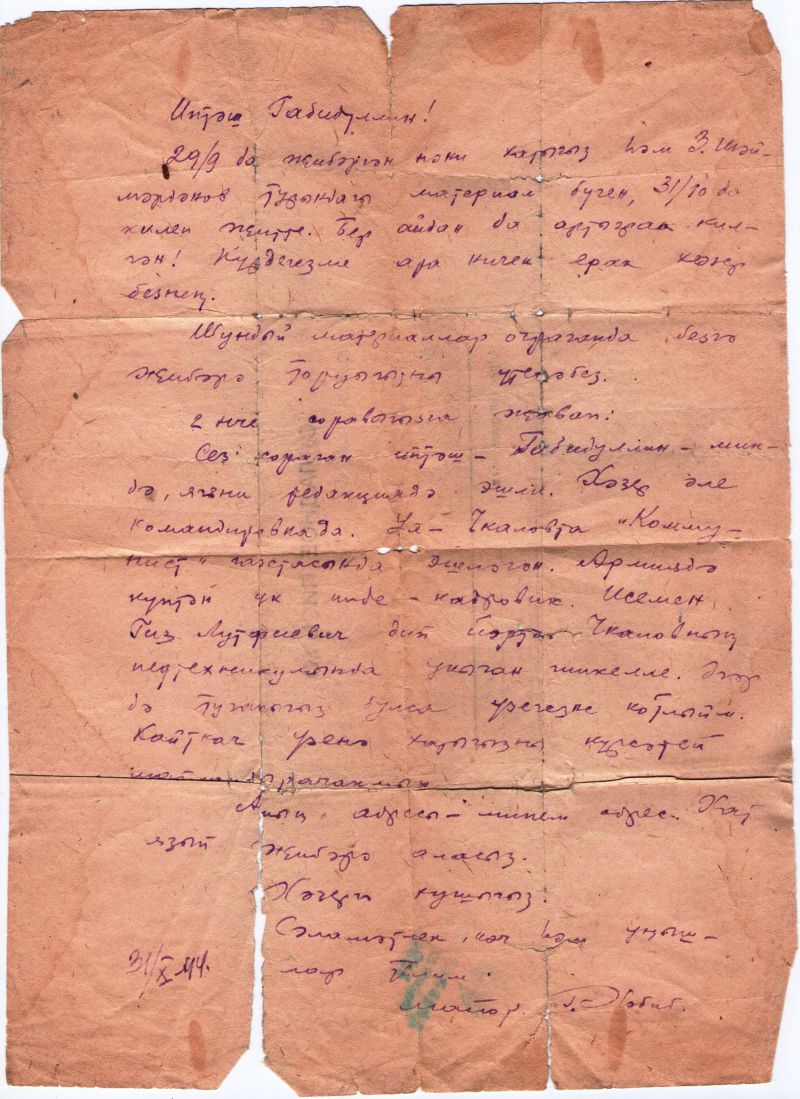 Иптәш Габидуллин!
29/9 да җибәргән хатыгыз һәм З. Шәй-
мәрданов турындагы материал бүген, 31/10 да
килеп җитте. Бер айдан да артыграк кил-
гән! Күрдегезме ара ничек ерак хәзер
безнең.
Шундый материаллар очраганда безгә
җибәрә торуыгызны үтенәбез.
2 нче соравыгызга җавап:
Сез сораган иптәш – Габидуллин – мин-
дә, ягъни редакциядә эшли. Хәзер әле
командировкада. Ул – Чкаловта "Комму-
нист" газетасында эшләгән. Армиядә
күптән ук инде – кадровик. Исемен
Гиз. Лутфиевич дип йөртә. Чкаловның
педтехникумында укыган шикелле. Әгәр
дә туганыгыз булса үзегезне котлыйм.
Кайткач үзенә хатыгызны күрсәтей
Аның адресы – минем адрес. Хат
язып җибәрә аласыз.
Хәзергә хушыгыз.
Сәламәтлек, көч һәм уңыш-
лар телим.
31/X 44.
майор Г.